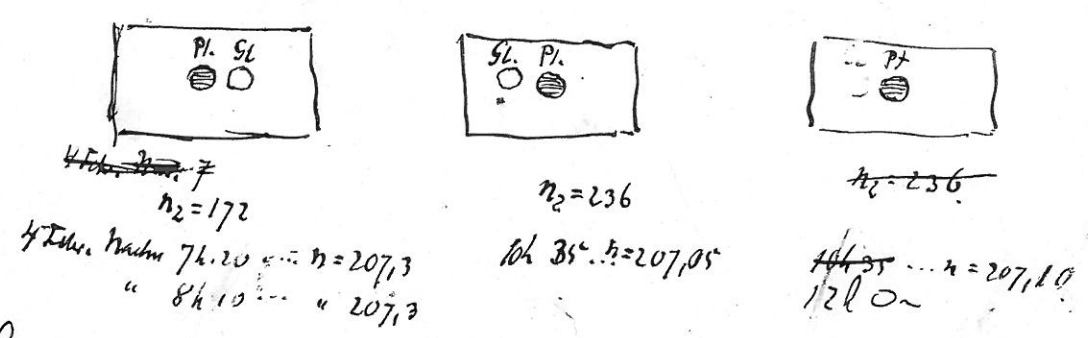 Pl. Gl.
n₂=172
4 Febr. Nachm 7h.20 .... n=207,3
" 8h 10 .... " 207,3
Gl. Pl.
n₂=236
10h 35 ... n=207,05
Pt
n₂=236
10h 35 ... n=207,10
12h 0m